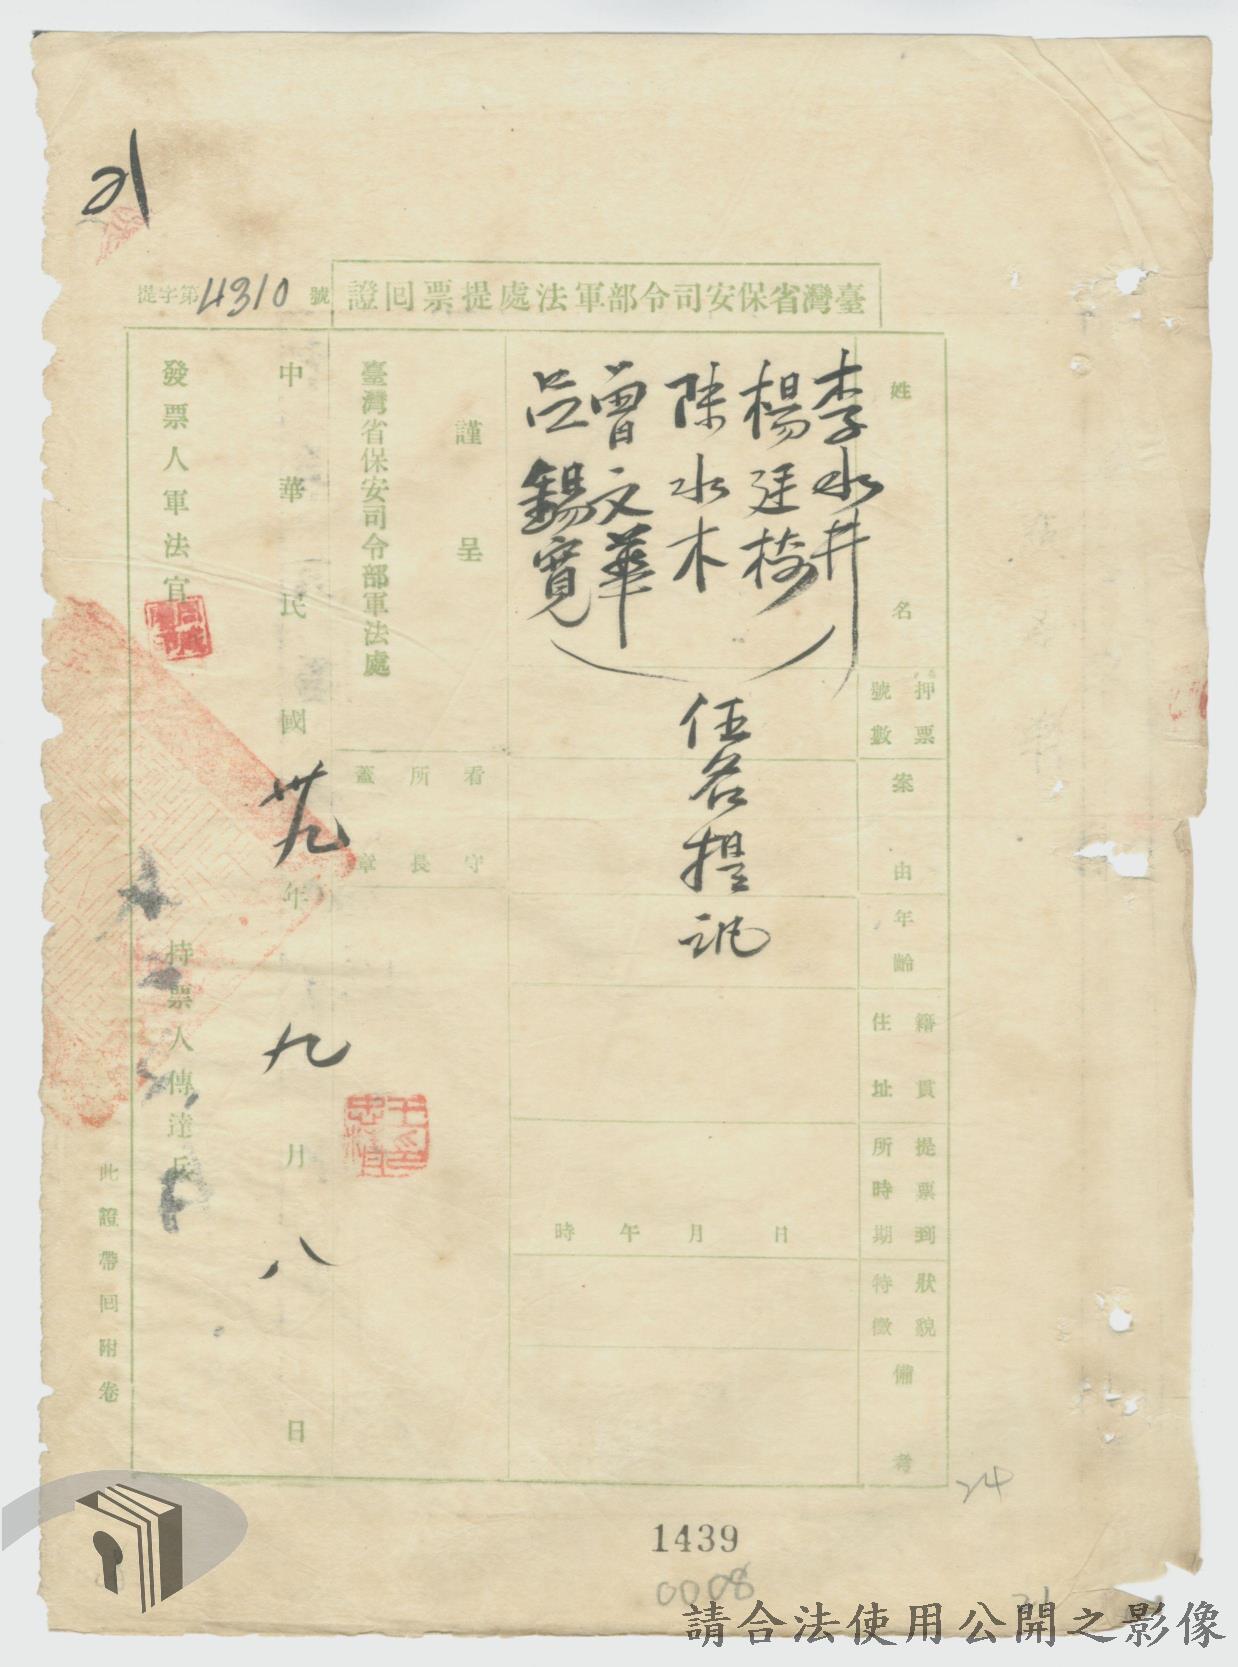 21
臺灣省保安司令部軍法處提票回證
提字第4310號
姓名
押票號數
案由
年齡
籍貫住址
提票到所時期
狀貌特徵
備考
李水井
楊廷椅
陳水木
曾文華
呂錫寬
伍名提訊
日月午時
謹呈
臺灣省保安司令部軍法處
看守所長蓋章
中華民國卅九年九月八日
發票人軍法官
持票人傳達兵
此證帶回附卷
24
1439
0008
21
請合法使用公開之影像